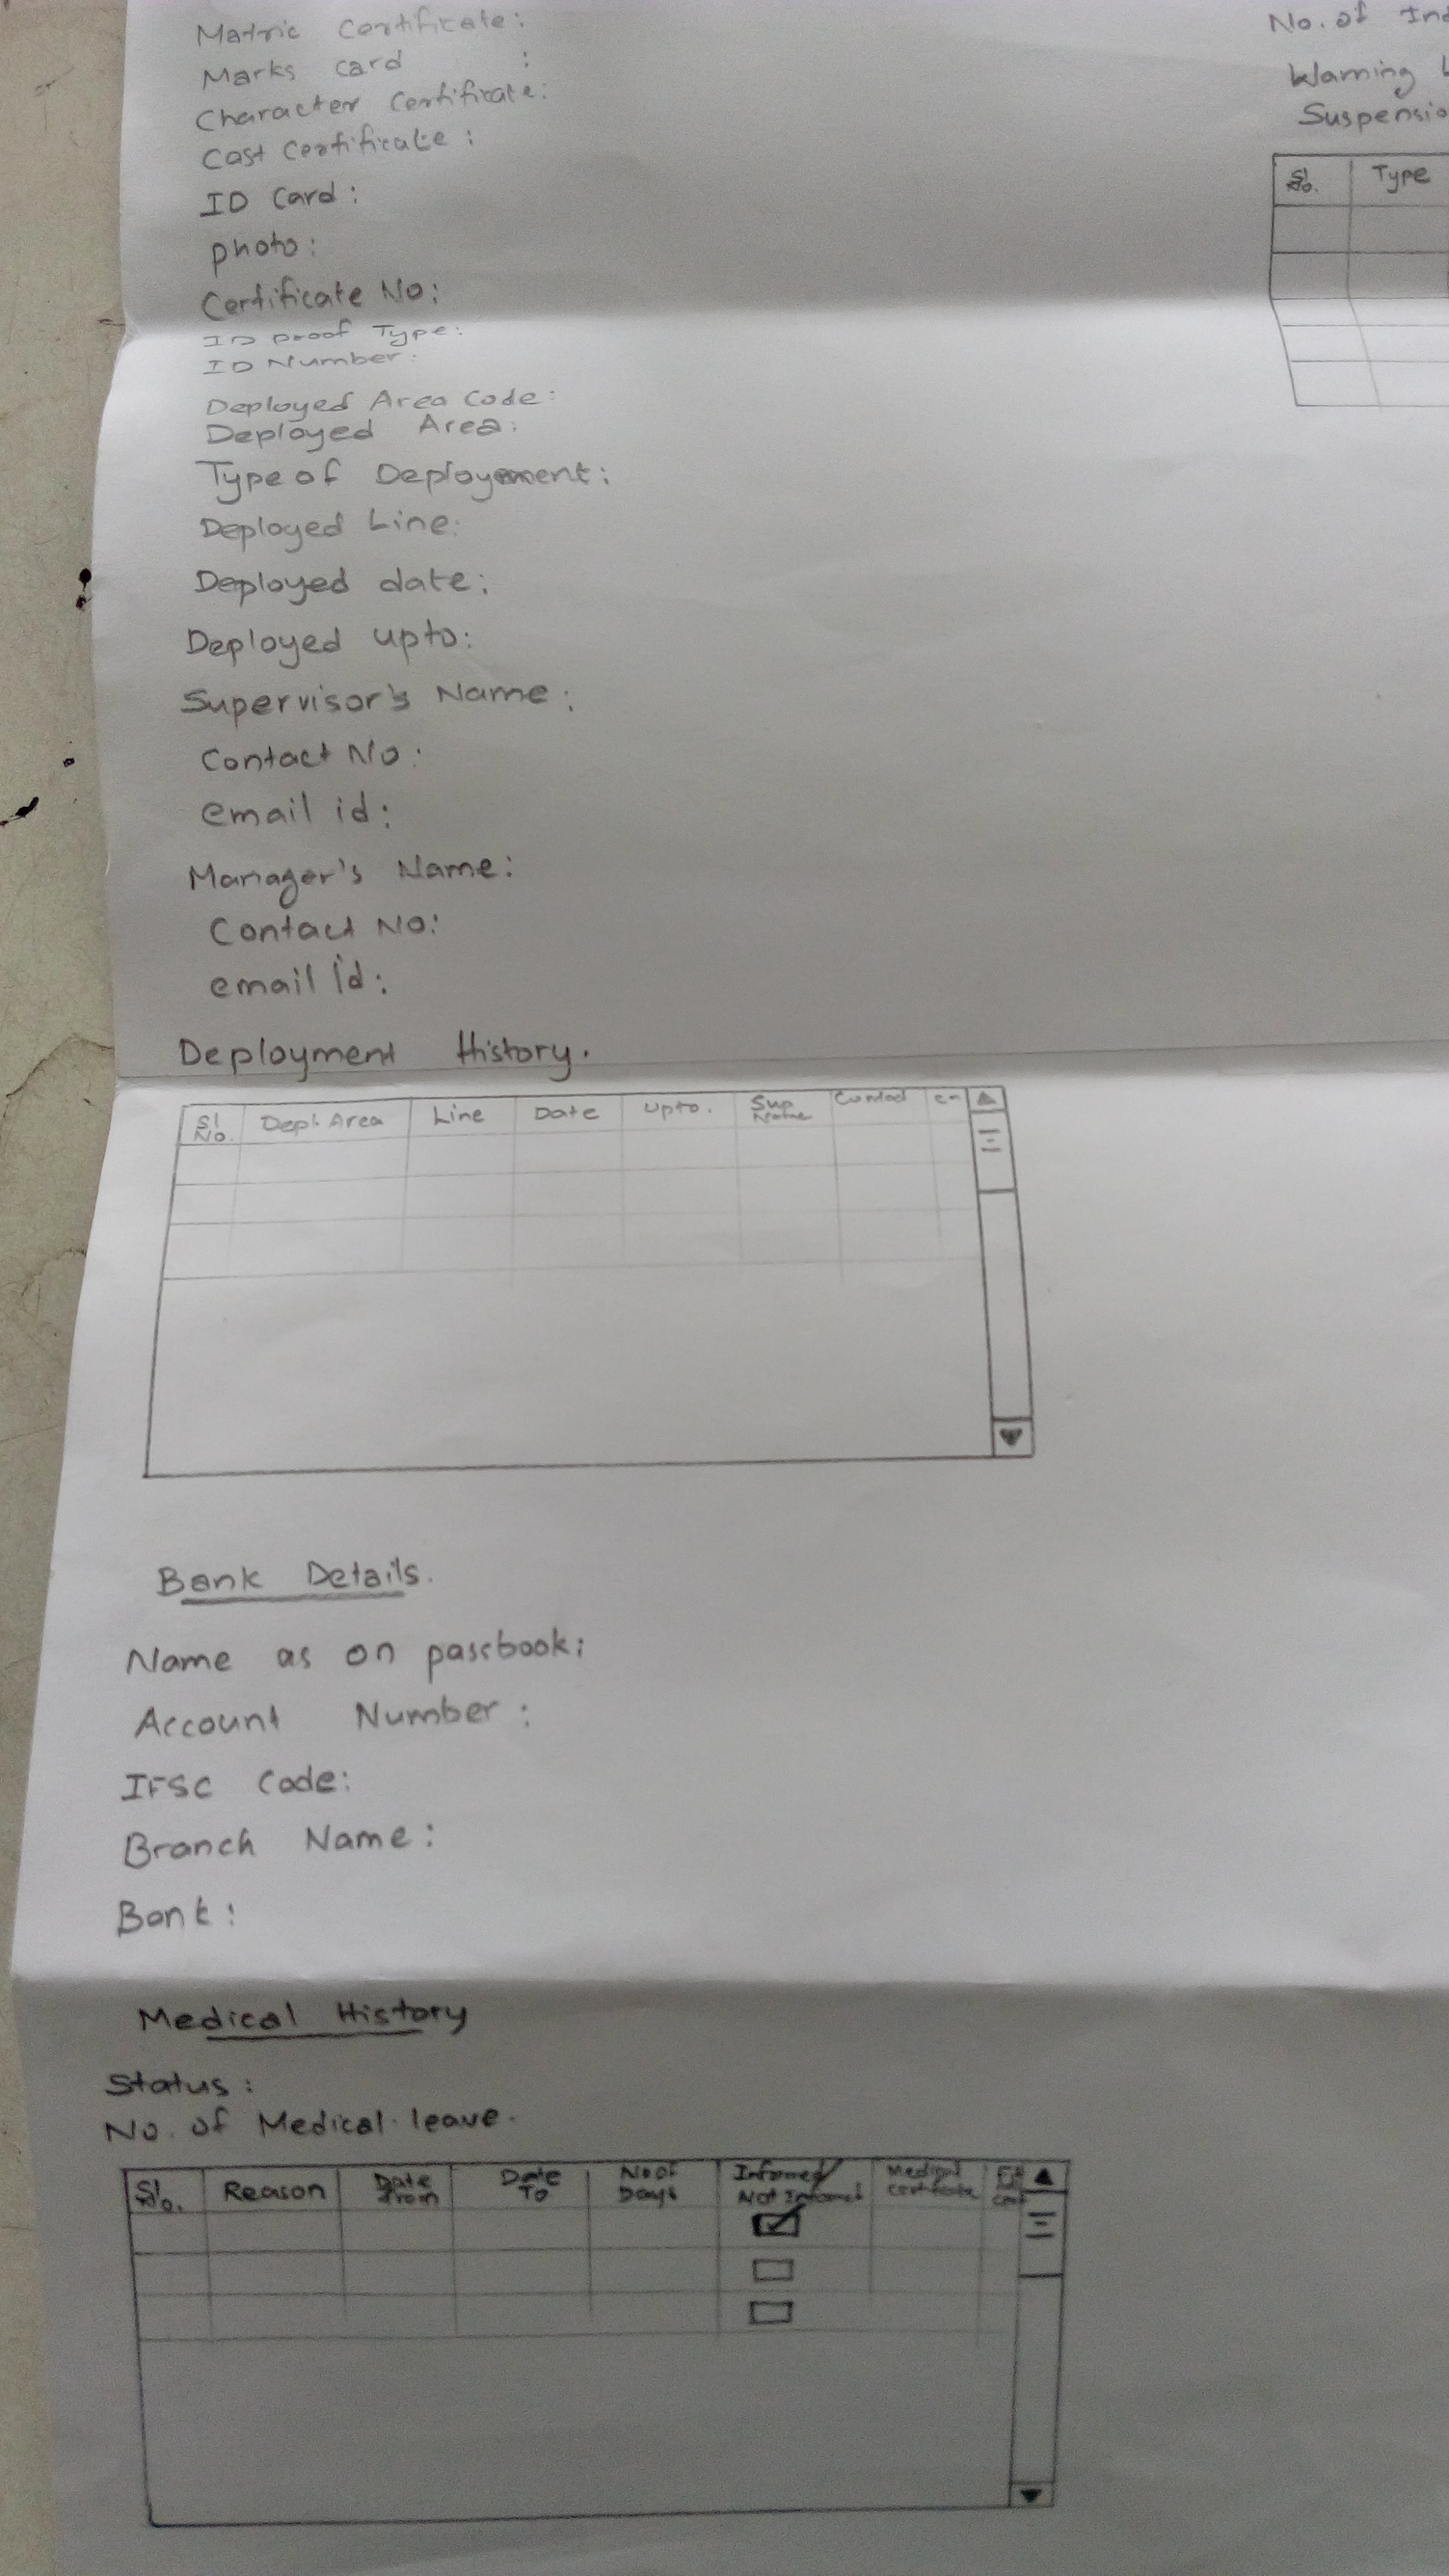 Matric Certificate:
Marks card :
Character Certificate:
Cast Certificate :
ID Card :
photo :
Certificate No:
ID proof Type:
ID Number:
Deployed Area Code:
Deployed Area:
Type of Deployement:
Deployed Line:
Deployed date:
Deployed upto:
Supervisor's Name :
Contact No:
email id:
Manager's Name:
Contact No:
email id:
Deployment History.
Sl No. Depl. Area Line Date upto. Sup Name Contact
Bank Details.
Name as on passbook:
Account Number :
IFSC Code:
Branch Name :
Bank :
Medical History
Status :
No. of Medical leave.
Sl. No. Reason Date from Date To No of Days Informed/ Not Informed Medical certificate
No. of
Warning
Sl. No. Type